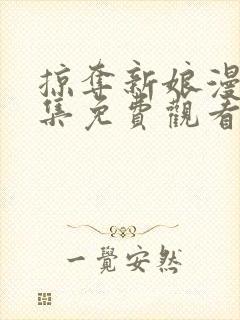 掠奪新娘漫
集免費觀看
一覺安然